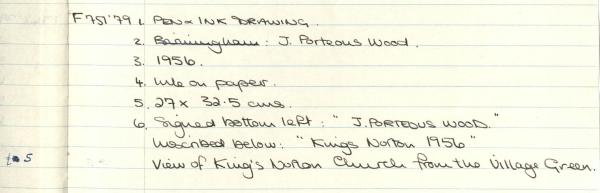 F751'79 1. PEN & INK DRAWING.
2. Birmingham: J. Porteous Wood.
3. 1956.
4. Ink on paper.
5. 27 x 32.5 cms.
6. Signed bottom left: "J. PORTEOUS WOOD."
Inscribed below: "Kings Norton 1956"
to 5 View of King's Norton Church from the Village Green.